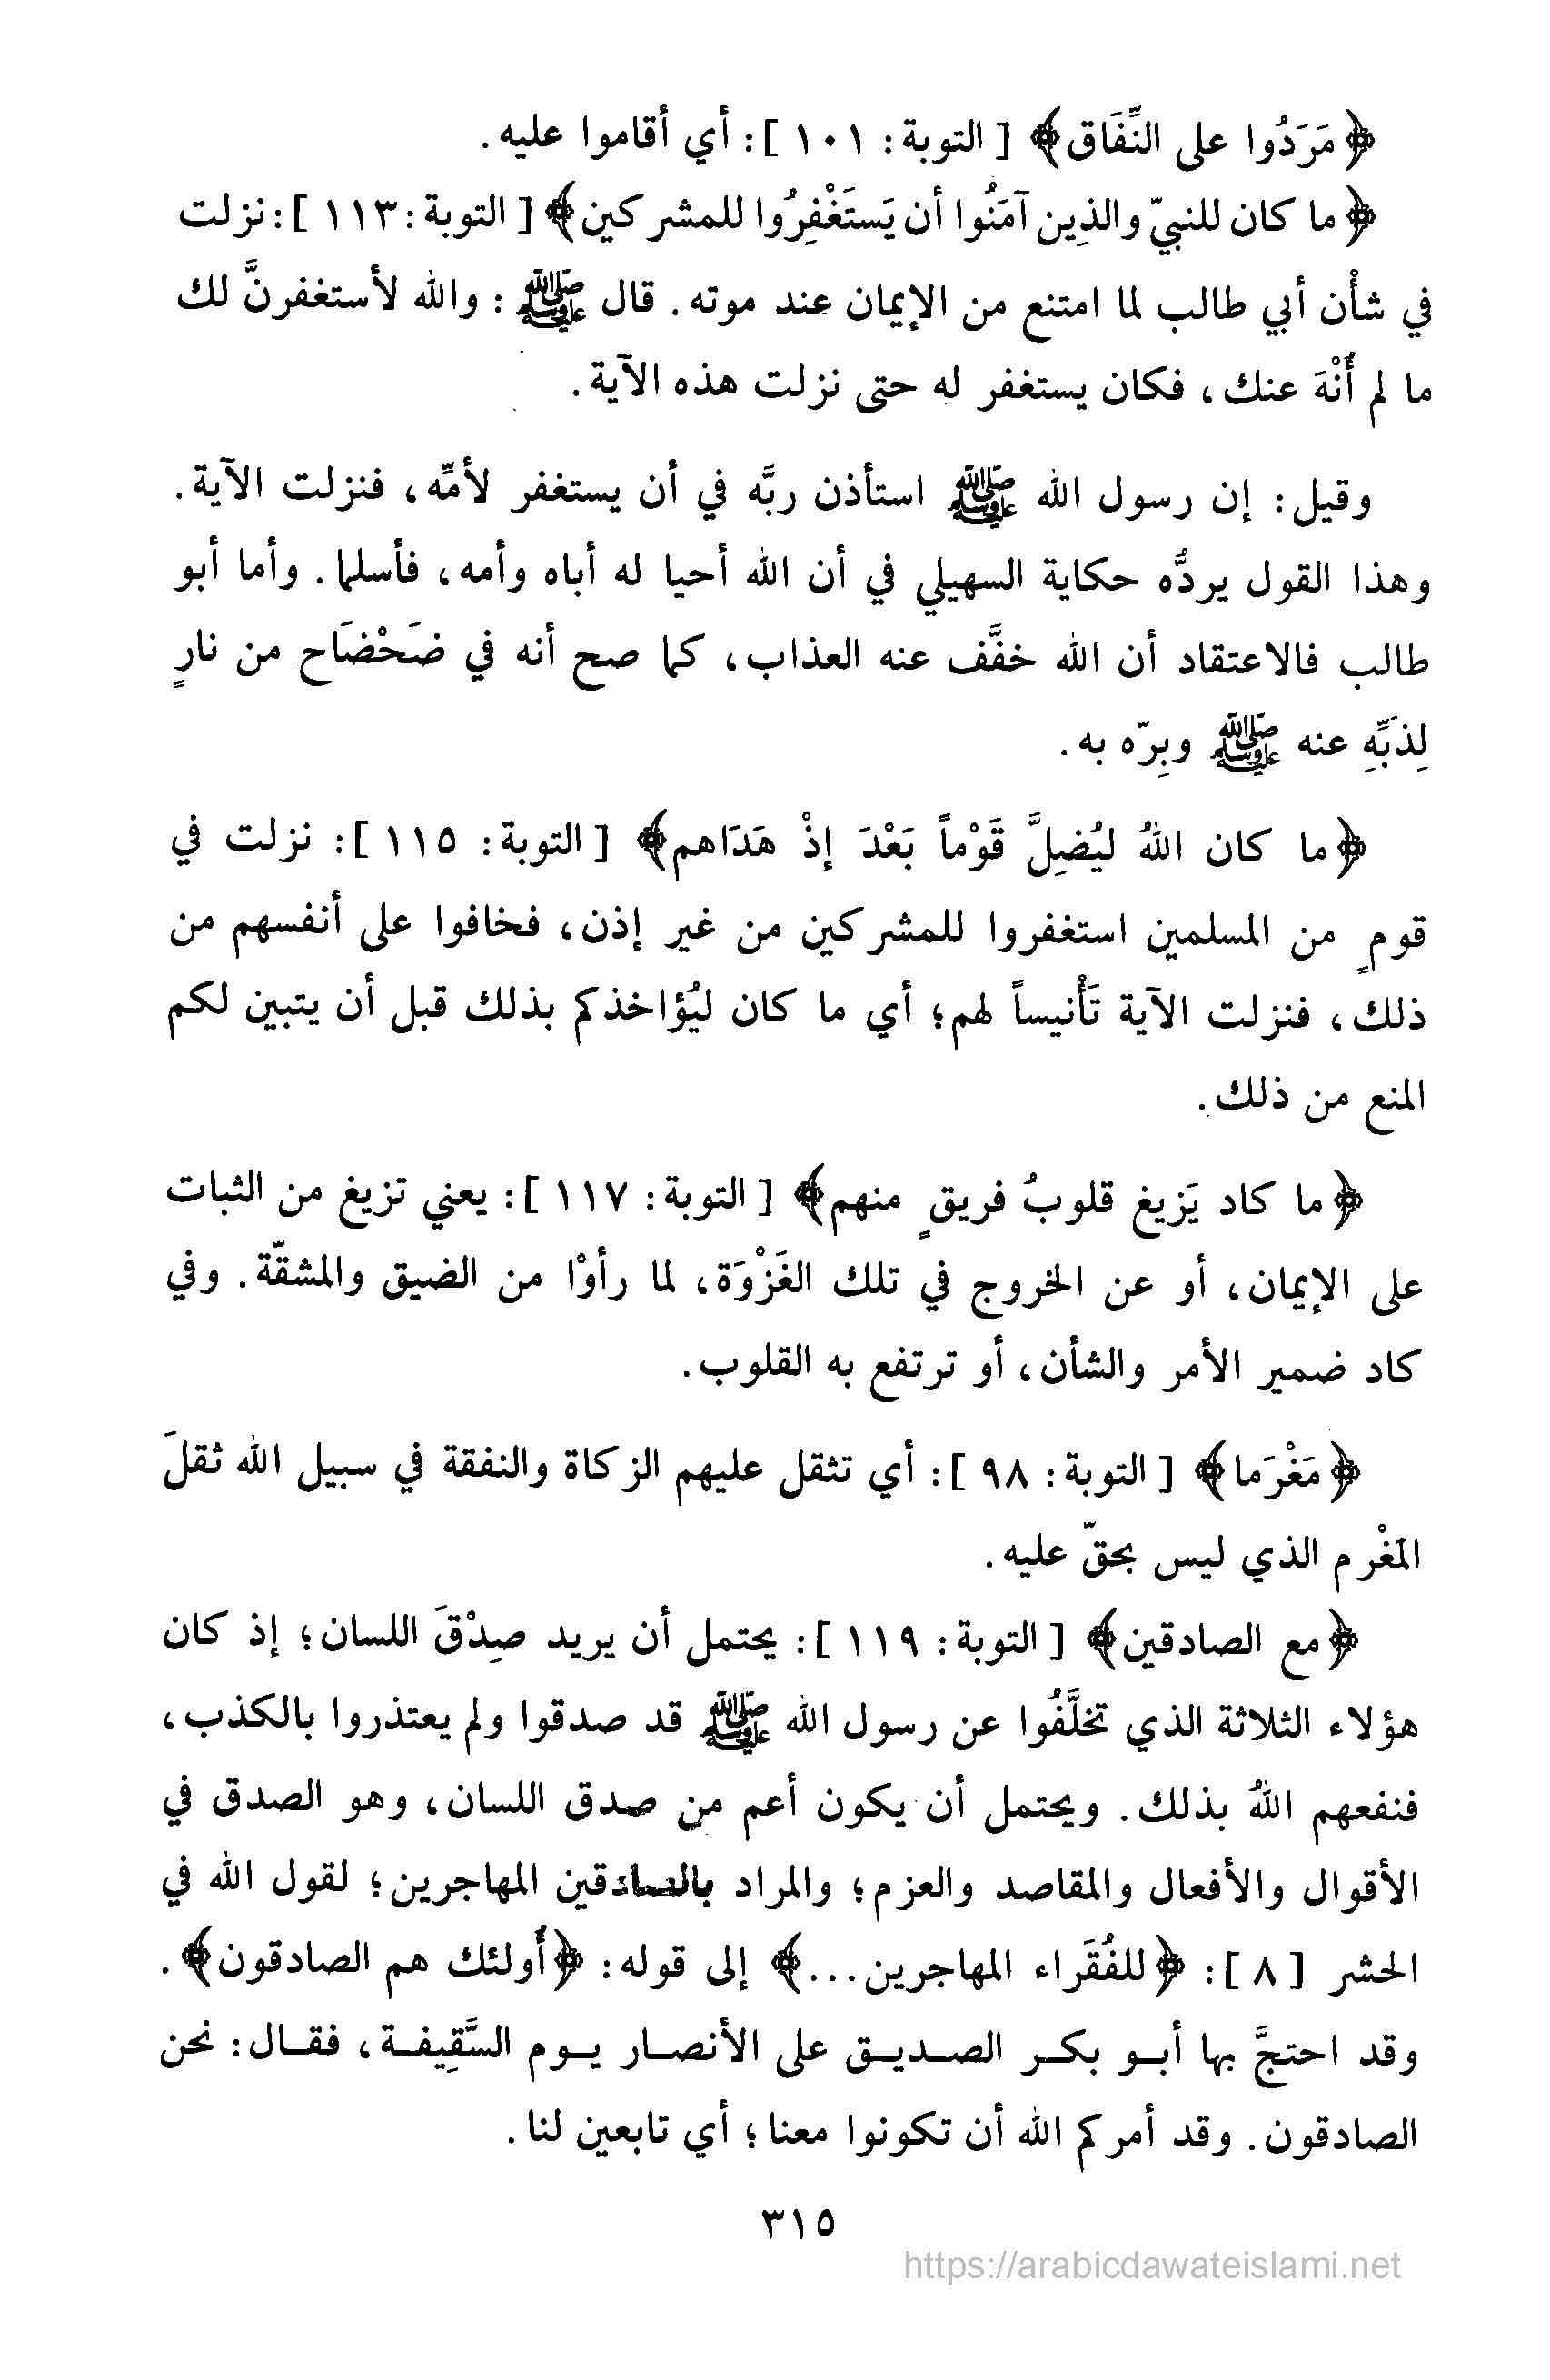 ﴿مَرَدُوا على النِّفَاق﴾ [ التوبة: ١٠١ ]: أي أقاموا عليه.
﴿ما كان للنبيّ والذِين آمَنُوا أن يَستَغْفِرُوا للمشركين﴾ [ التوبة: ١١٣ ]: نزلت
في شأْن أبي طالب لما امتنع من الإيمان عند موته. قال ﷺ : والله لأستغفرنَّ لك
ما لم أُنْهَ عنك، فكان يستغفر له حتى نزلت هذه الآية.
وقيل: إن رسول الله ﷺ استأذن ربَّه في أن يستغفر لأمِّه، فنزلت الآية.
وهذا القول يردُّه حكاية السهيلي في أن الله أحيا له أباه وأمه، فأسلما. وأما أبو
طالب فالاعتقاد أن الله خفَّف عنه العذاب، كما صح أنه في ضَحْضَاح من نارٍ
لِذبَِّهِ عنه ﷺ وبِرّه به.
﴿ما كان اللهُ ليُضِلَّ قَوْماً بَعْدَ إذْ هَدَاهم﴾ [ التوبة: ١١٥ ]: نزلت في
قومٍ من المسلمين استغفروا للمشركين من غير إذن، فخافوا على أنفسهم من
ذلك، فنزلت الآية تَأْنيساً لهم؛ أي ما كان ليُؤاخذكم بذلك قبل أن يتبين لكم
المنع من ذلك.
﴿ما كاد يَزيغ قلوبُ فريقٍ منهم﴾ [ التوبة: ١١٧ ]: يعني تزيغ من الثبات
على الإيمان، أو عن الخروج في تلك الغَزْوَة، لما رأوْا من الضيق والمشقّة. وفي
كاد ضمير الأمر والشأن، أو ترتفع به القلوب.
﴿مَغْرَما﴾ [ التوبة: ٩٨ ]: أي تثقل عليهم الزكاة والنفقة في سبيل الله ثقلَ
المَغْرم الذي ليس بحقّ عليه.
﴿مع الصادقين﴾ [ التوبة: ١١٩ ]: يحتمل أن يريد صِدْقَ اللسان؛ إذ كان
هؤلاء الثلاثة الذي تخلَّفُوا عن رسول الله ﷺ قد صدقوا ولم يعتذروا بالكذب،
فنفعهم اللهُ بذلك. ويحتمل أن يكون أعم من صدق اللسان، وهو الصدق في
الأقوال والأفعال والمقاصد والعزم؛ والمراد بالصادقين المهاجرين؛ لقول الله في
الحشر [ ٨ ]: ﴿للفُقَراء المهاجرين...﴾ إلى قوله: ﴿أُولئك هم الصادقون﴾.
وقد احتجَّ بها أبو بكر الصديق على الأنصار يوم السَّقِيفة، فقال: نحن
الصادقون. وقد أمركم الله أن تكونوا معنا؛ أي تابعين لنا.
٣١٥
https://arabicdawateislami.net